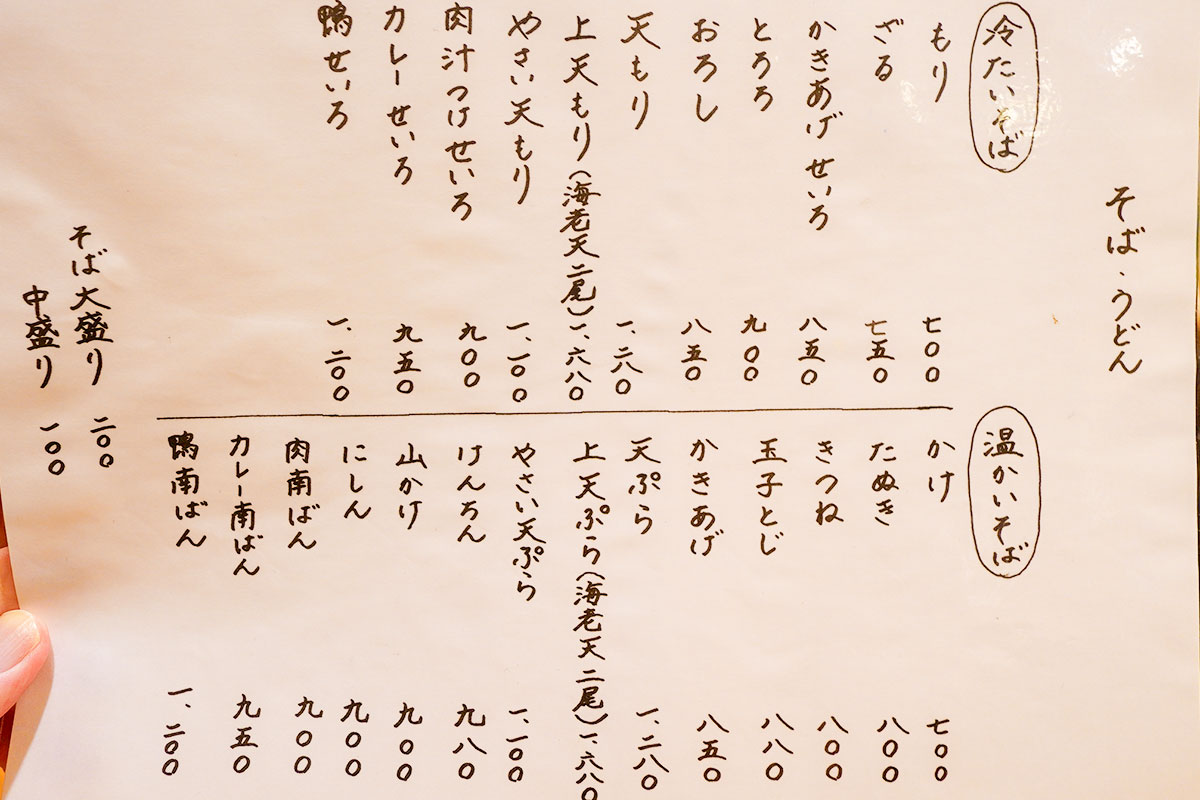 そば・うどん
冷たいそば
もり 七〇〇
ざる 七五〇
かきあげせいろ 八五〇
とろろ 九〇〇
おろし 八五〇
天もり 一、二八〇
上天もり(海老天二尾) 一、六八〇
やさい天もり 一、一〇〇
肉汁つけせいろ 九〇〇
カレーせいろ 九五〇
鴨せいろ 一、二〇〇
温かいそば
かけ 七〇〇
たぬき 八〇〇
きつね 八〇〇
玉子とじ 八八〇
かきあげ 八五〇
天ぷら 一、二八〇
上天ぷら(海老天二尾) 一、六八〇
やさい天ぷら 一、一〇〇
けんちん 九八〇
山かけ 九〇〇
にしん 九〇〇
肉南ばん 九〇〇
カレー南ばん 九五〇
鴨南ばん 一、二〇〇
そば大盛り 二〇〇
中盛り 一〇〇